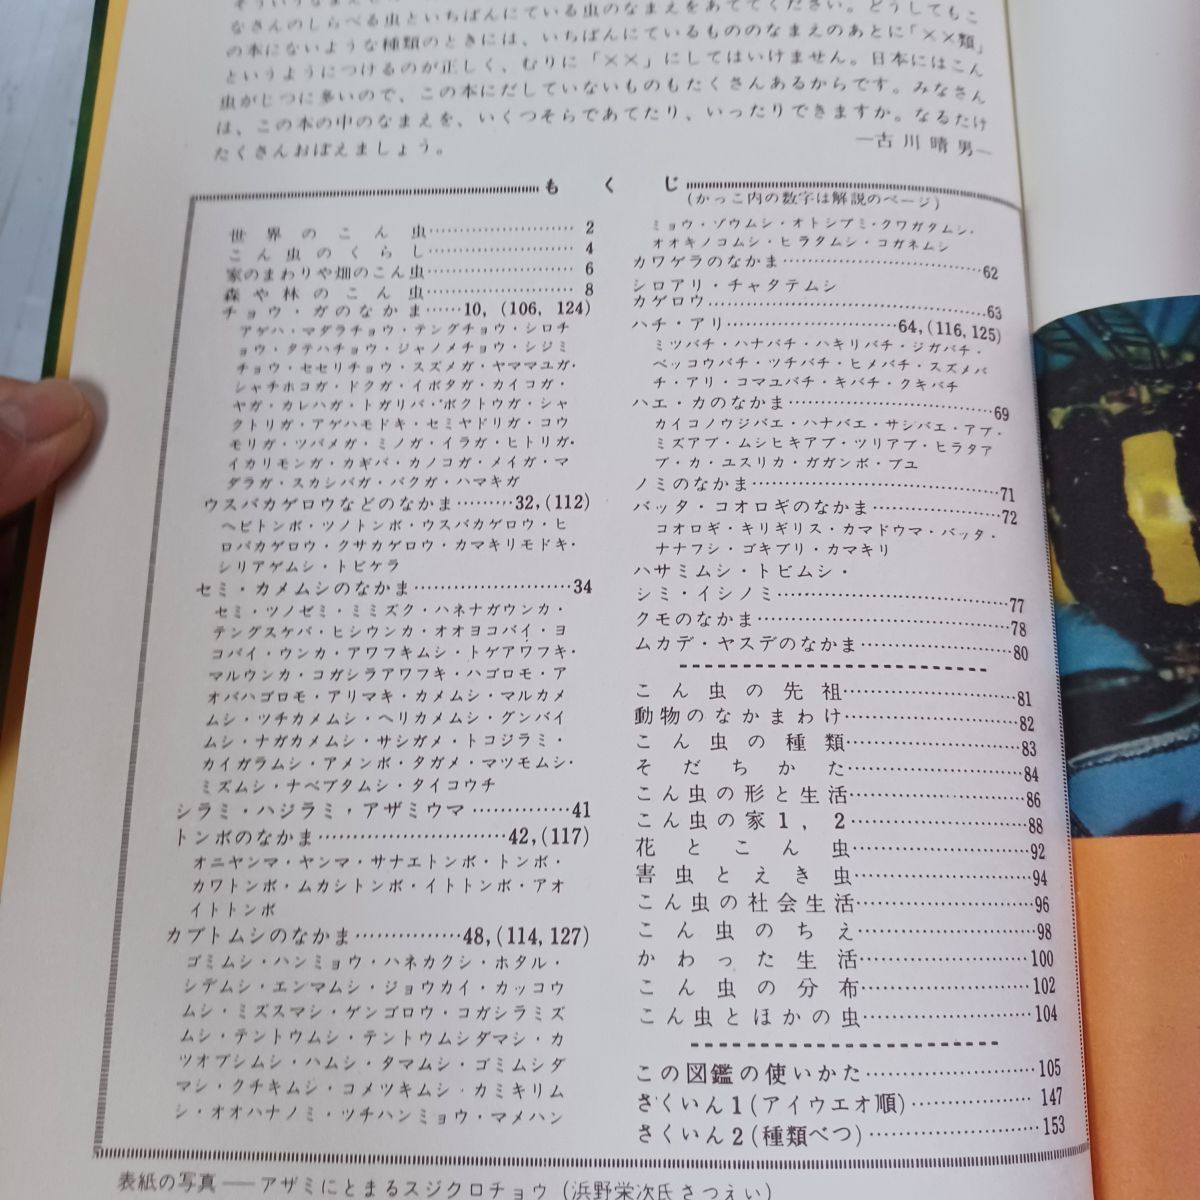 なさんのしらべる虫といちばんにている虫のなまえをあててください。どうしてもこ
の本にないような種類のときには、いちばんにているもののなまえのあとに「××類」
というようにつけるのが正しく、むりに「××」にしてはいけません。日本にはこん
虫がじつに多いので、この本にだしていないものもたくさんあるからです。みなさん
は、この本の中のなまえを、いくつそらであてたり、いったりできますか。なるたけ
たくさんおぼえましょう。
―古川晴男―
もくじ
(かっこ内の数字は解説のページ)
世界のこん虫……………………2
こん虫のくらし……………………4
家のまわりや畑のこん虫……………………6
森や林のこん虫……………………8
チョウ・ガのなかま……10,(106, 124)
アゲハ・マダラチョウ・テングチョウ・シロチ
ョウ・タテハチョウ・ジャノメチョウ・シジミ
チョウ・セセリチョウ・スズメガ・ヤママユガ・
シャチホコガ・ドクガ・イボタガ・カイコガ・
ヤガ・カレハガ・トガリバ・ボクトウガ・シャ
クトリガ・アゲハモドキ・セミヤドリガ・コウ
モリガ・ツバメガ・ミノガ・イラガ・ヒトリガ・
イカリモンガ・カギバ・カノコガ・メイガ・マ
ダラガ・スカシバガ・バクガ・ハマキガ
ウスバカゲロウなどのなかま………32,(112)
ヘビトンボ・ツノトンボ・ウスバカゲロウ・ヒ
ロバカゲロウ・クサカゲロウ・カマキリモドキ・
シリアゲムシ・トビケラ
セミ・カメムシのなかま……………………34
セミ・ツノゼミ・ミミズク・ハネナガウンカ・
テングスケバ・ヒシウンカ・オオヨコバイ・ヨ
コバイ・ウンカ・アワフキムシ・トゲアワフキ・
マルウンカ・コガシラアワフキ・ハゴロモ・ア
オバハゴロモ・アリマキ・カメムシ・マルカメ
ムシ・ツチカメムシ・ヘリカメムシ・グンバイ
ムシ・ナガカメムシ・サシガメ・トコジラミ・
カイガラムシ・アメンボ・タガメ・マツモムシ・
ミズムシ・ナベブタムシ・タイコウチ
シラミ・ハジラミ・アザミウマ……………41
トンボのなかま………………………42,(117)
オニヤンマ・ヤンマ・サナエトンボ・トンボ・
カワトンボ・ムカシトンボ・イトトンボ・アオ
イトトンボ
カブトムシのなかま……………48,(114, 127)
ゴミムシ・ハンミョウ・ハネカクシ・ホタル・
シデムシ・エンマムシ・ジョウカイ・カッコウ
ムシ・ミズスマシ・ゲンゴロウ・コガシラミズ
ムシ・テントウムシ・テントウムシダマシ・カ
ツオブシムシ・ハムシ・タマムシ・ゴミムシダ
マシ・クチキムシ・コメツキムシ・カミキリム
シ・オオハナノミ・ツチハンミョウ・マメハン
ミョウ・ゾウムシ・オトシブミ・クワガタムシ・
オオキノコムシ・ヒラタムシ・コガネムシ
カワゲラのなかま……………………62
シロアリ・チャタテムシ
カゲロウ……………………63
ハチ・アリ……………………64,(116, 125)
ミツバチ・ハナバチ・ハキリバチ・ジガバチ・
ベッコウバチ・ツチバチ・ヒメバチ・スズメバ
チ・アリ・コマユバチ・キバチ・クキバチ
ハエ・カのなかま……………………69
カイコノウジバエ・ハナバエ・サシバエ・アブ・
ミズアブ・ムシヒキアブ・ツリアブ・ヒラタア
ブ・カ・ユスリカ・ガガンボ・ブユ
ノミのなかま……………………71
バッタ・コオロギのなかま……………72
コオロギ・キリギリス・カマドウマ・バッタ・
ナナフシ・ゴキブリ・カマキリ
ハサミムシ・トビムシ・
シミ・イシノミ……………………77
クモのなかま……………………78
ムカデ・ヤスデのなかま……………80
こん虫の先祖……………………81
動物のなかまわけ……………………82
こん虫の種類……………………83
そだちかた……………………84
こん虫の形と生活……………………86
こん虫の家1，2……………………88
花とこん虫……………………92
害虫とえき虫……………………94
こん虫の社会生活……………………96
こん虫のちえ……………………98
かわった生活……………………100
こん虫の分布……………………102
こん虫とほかの虫……………………104
この図鑑の使いかた……………………105
さくいん1(アイウエオ順)………………147
さくいん2(種類べつ)……………………153
表紙の写真――アザミにとまるスジクロチョウ (浜野栄次氏さつえい)